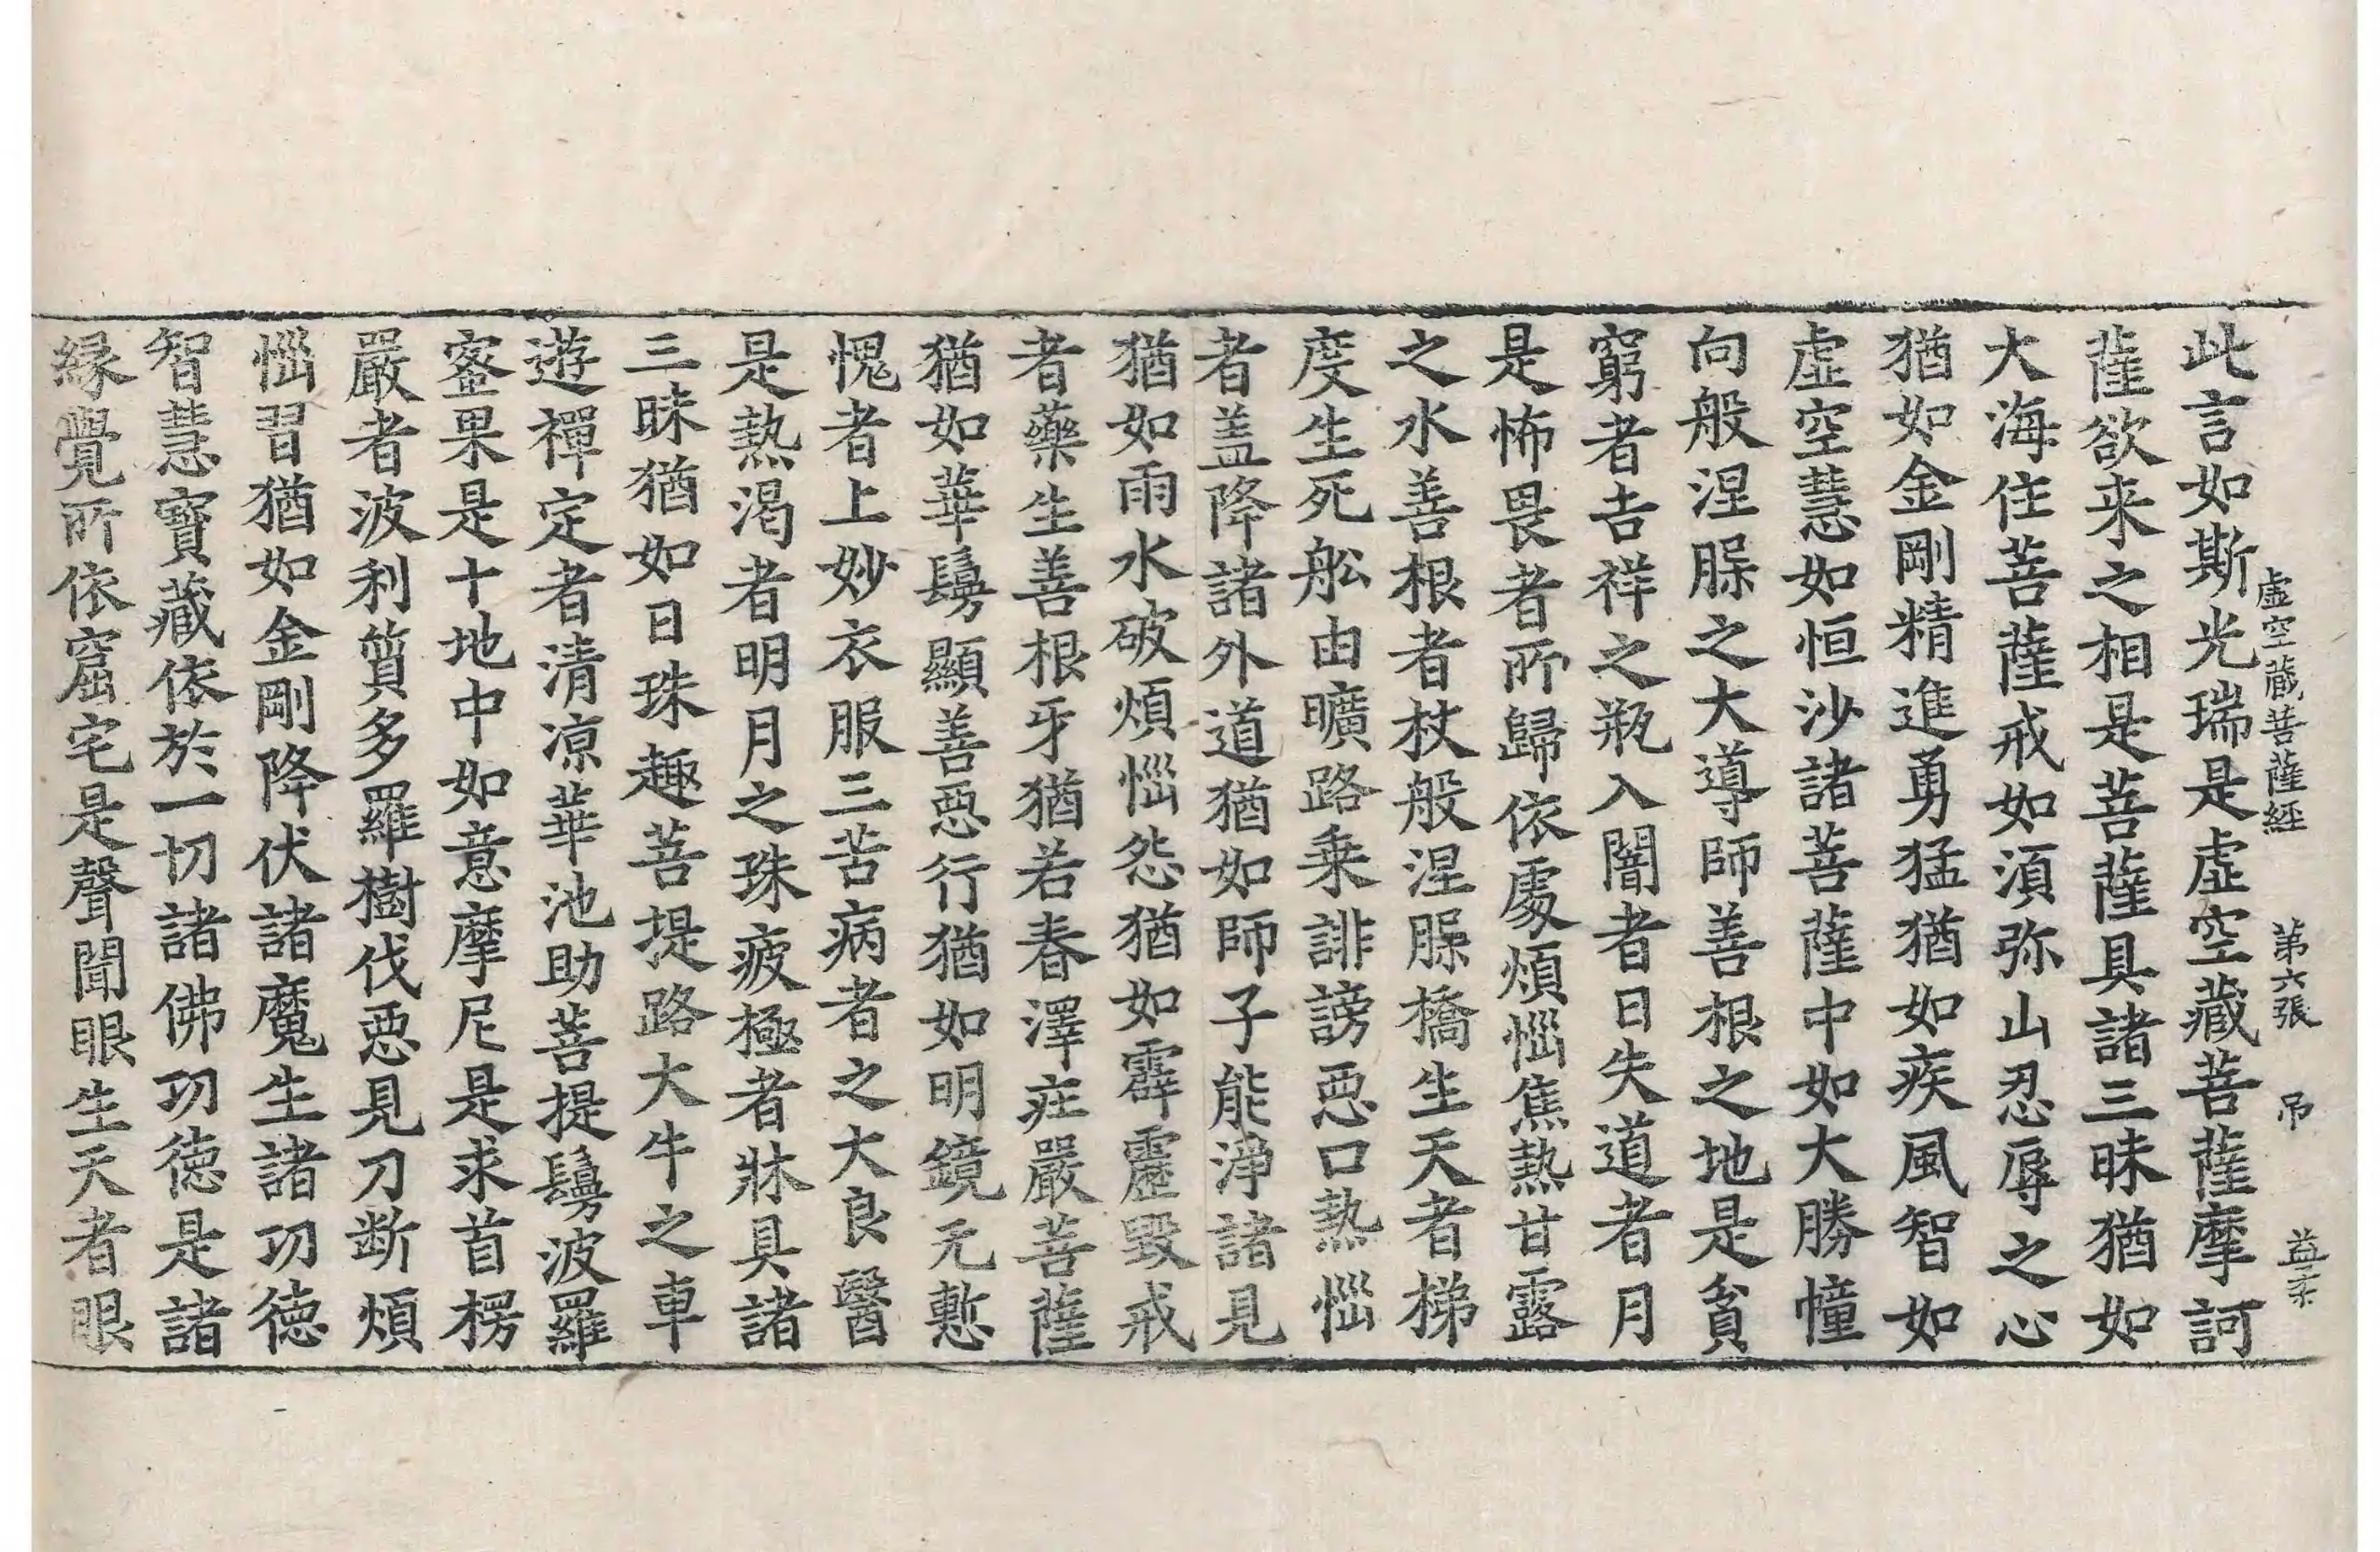 虚空藏菩薩経 第六張 吊
此言如斯光瑞是虚空藏菩薩摩訶
薩欲来之相是菩薩具諸三昧猶如
大海住菩薩戒如湏弥山忍辱之心
猶如金剛精進勇猛猶如疾風智如
虚空慧如恒沙諸菩薩中如大勝幢
向般涅槃之大導師善根之地是貧
窮者吉祥之瓶入闇者日失道者月
是怖畏者所歸依處煩惱焦熱甘露
之水善根者杖般涅槃橋生天者梯
度生死舩由曠路乗誹謗惡口熱惱
者盖降諸外道猶如師子能淨諸見
猶如雨水破煩惱怨猶如霹靂毀戒
者藥生善根牙猶若春澤莊嚴菩薩
猶如華鬘顯善惡行猶如明鏡无慙
愧者上妙衣服三苦病者之大良醫
是熱渴者明月之珠疲極者牀具諸
三昧猶如日珠趣菩提路大牛之車
遊禪定者清凉華池助菩提鬘波羅
蜜果是十地中如意摩尼是求首楞
嚴者波利質多羅樹伐惡見刀断煩
惱習猶如金剛降伏諸魔生諸功德
智慧寶藏依於一切諸佛功德是諸
縁覺所依窟宅是聲聞眼生天者眼